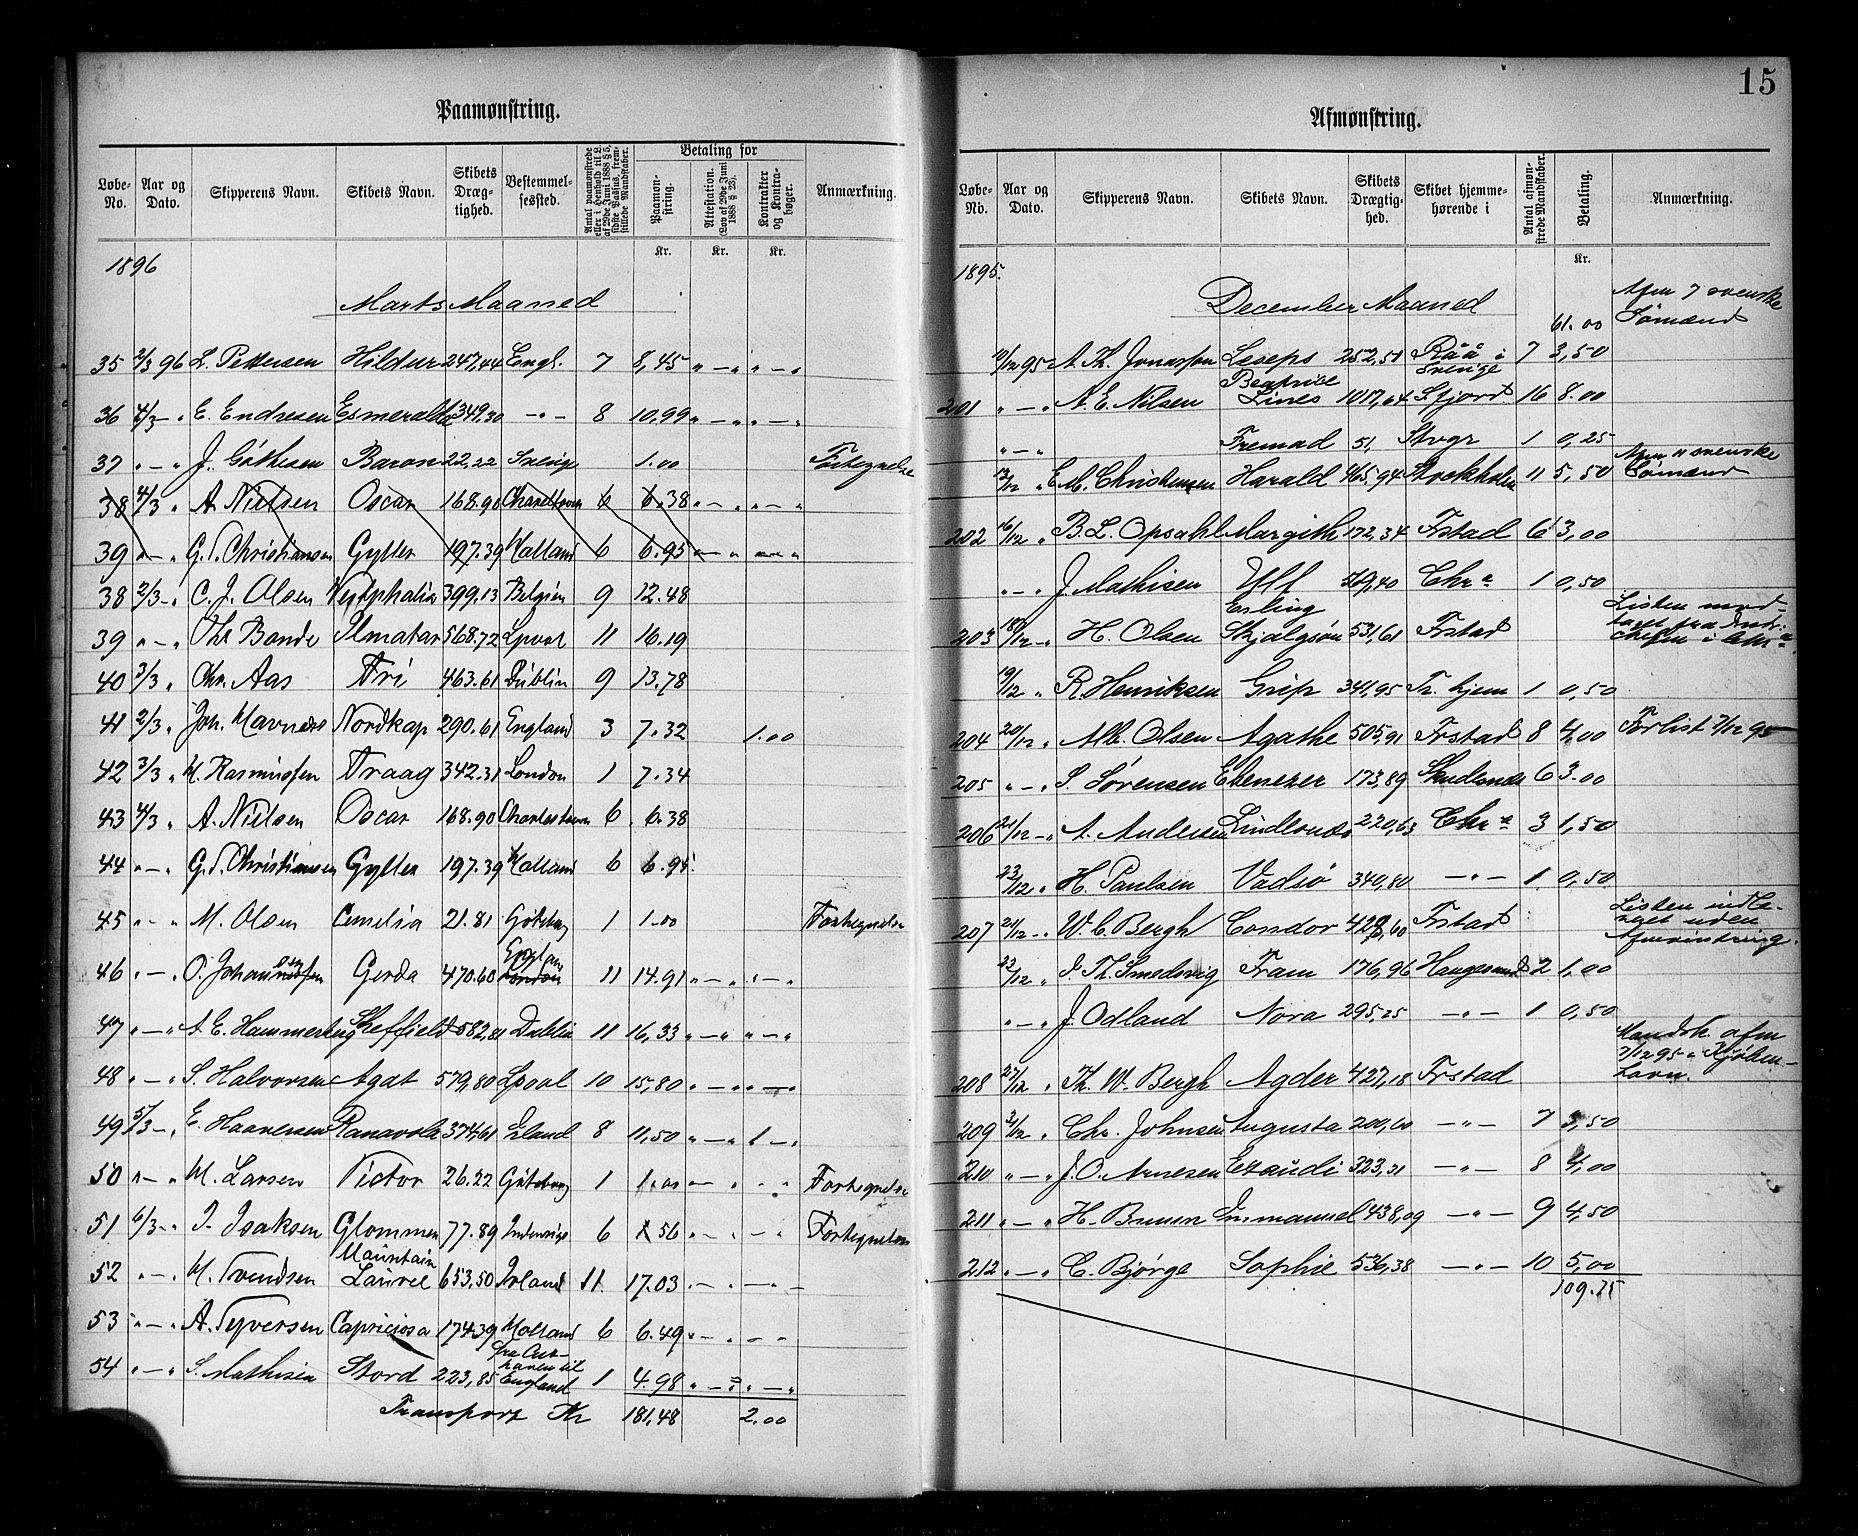 Paamønstring.
Løbe-No. Aar og Dato. Skipperens Navn. Skibets Navn. Skibets Dræg-tighed. Bestemmel-sessted. Antal paamønstrede eller i Henhold til L. af 29de Juni 1888 § 5, sidste Passus, frem-stillede Mandskaber. Betaling for Paamøn-string. Attestation. (Lov af 29de Juni 1888 § 23). Kontrakter og Kontra-bøger. Anmærkning.
Kr. Kr. Kr.
1896
Marts Maaned
35 2/3 96 L. Pettersen Hildur 247,44 Engl. 7 8,45 " — " " — "
36 4/3 — " E. Endresen Esmeralda 349.30 — " — 8 10,99 " — " " — "
37 " — " J. Göthesen Baron 22,22 Sverige 1.00 Fortegnelse
38 4/3 " A. Nielsen Oscar 168.90 Charlestown 6 6.38 " — " " — "
39 " — " G. T. Christiansen Gylter 197.39 Holland 6 6.95 " — " " — "
38 2/3 — " C. J. Olsen Vestphalia 399.13 Belgien 9 12.48
39 " — " Chr Bonde Ilmatar 568.72 Lpool 11 16.19
40 3/3 " Chr. Aas Fri 463.61 Dublin 9 13.78
41 2/3 " Joh. Havnæs Nordkap 290.61 England 3 7.32 1.00
42 3/3 " M. Rasmussen Traag 342.31 London 1 7.34
43 4/3 " A. Nielsen Oscar 168.90 Charlestown 6 6.38
44 " — " G. T. Christiansen Gylter 197.39 Holland 6 6.95
45 " — " M. Olsen Amelia 21.81 Göteborg 1 1.00 Fortegnelse
46 " — " O. Johannesen Gerda 470.60 England London 11 14.91 " — " " — "
47 " — " A. E. Hammerberg Sheffield 582,81 Dublin 11 16,33 " — " " — "
48 " — " S. Halvorsen Agat 579,80 Lpool 10 15,80 " — " " — "
49 5/3 — " E. Haaversen Ranavola 374,61 Irland 8 11,50 " — " 1 — "
50 " — " M. Larsen Victor 26.22 Göteborg 1 1.00 — " " — " Fortegnelse
51 6/3 — " J. Isaksen Glommen 77.89 Indenrigs 6 1 56 " — " " — " Fortegnelse
52 " — " M. Svendsen Mountain Laurel 653.50 Irland 11 17.03 " — " — " —
53 " — " A. Syversen Capriciosa 174.39 Holland 6 6.49 " — " — " —
54 " — " S. Mathisen Stord 223,85 fra Cux-haven til England 1 4.98 " — " " — "
Transport Kr 181,48 2.00
15
Afmønstring.
Løbe-No. Aar og Dato. Skipperens Navn. Skibets Navn. Skibets Drægtig-hed. Skibet hjemme-hørende i Antal afmøn-strede Mandskaber. Betaling. Anmærkning.
Kr.
1895.
December Maaned
61.00 Afm 7 svenske Sømænd
10/12 95 A. Th. Jonasson Leseps 252,51 Råå i Sverige 7 3,50
201 " — " A. E. Nilsen Beatrice Lines 1017,64 Sfjord 16 8.00
" — " Fremad 51, Stvgr 1 0,25
12/12 " E. M. Christensen Harald 465.94 Stockholm 11 5,50 Afm 11 svenske Sømænd
202 16/12 " B. L. Opsahl Margith 172,34 Frstad 6 3,00
" — " J. Mathisen Ulf 769,40 Chra 1 0,50
203 18/12 — " H. Olsen Erling Skjalgsøn 531,61 Frstad Listen mod-taget fra Indr. chefen i Chra.
19/12 " R. Henriksen Grip 341,95 Tr. hjem 1 0,50
204 20/12 " Alb. Olsen Agathe 505,91 Frstad 8 4,00 Forlist 7/12 95
205 " — " S. Sørensen Ebenezer 173,89 Skudesnæs 6 3.00
206 21/12 — " A. Andersen Lindesnæs 220,63 Chra 3 1,50
23/12 " H. Paulsen Vadsø 340,80 — " — 1 0,50
207 21/12 — " W. C. Bergh Condor 428,60 Frstad Listen indle-veret uden Afmønstring.
23/12 " J. Th. Smedsvig Fram 176,96 Haugesund 2 1,00
" — " J. Odland Nora 295,25 — " — 1 0,50
208 27/12 " Th. W. Bergh Agder 427,18 Frstad Mandsk. afm 7/12 95 i Kjøben-havn.
209 31/12 " Chr. Johnsen Augusta 200,60 — " — 7 3,50
210 " — " J. O. Arnesen Exaudi 323,31 — " — 8 4,00
211 " — " H. Bruun Immanuel 438,09 — " — 9 4,50
212 " — " C. Bjørge Sophie 536,38 — " — 10 5,00
109.75